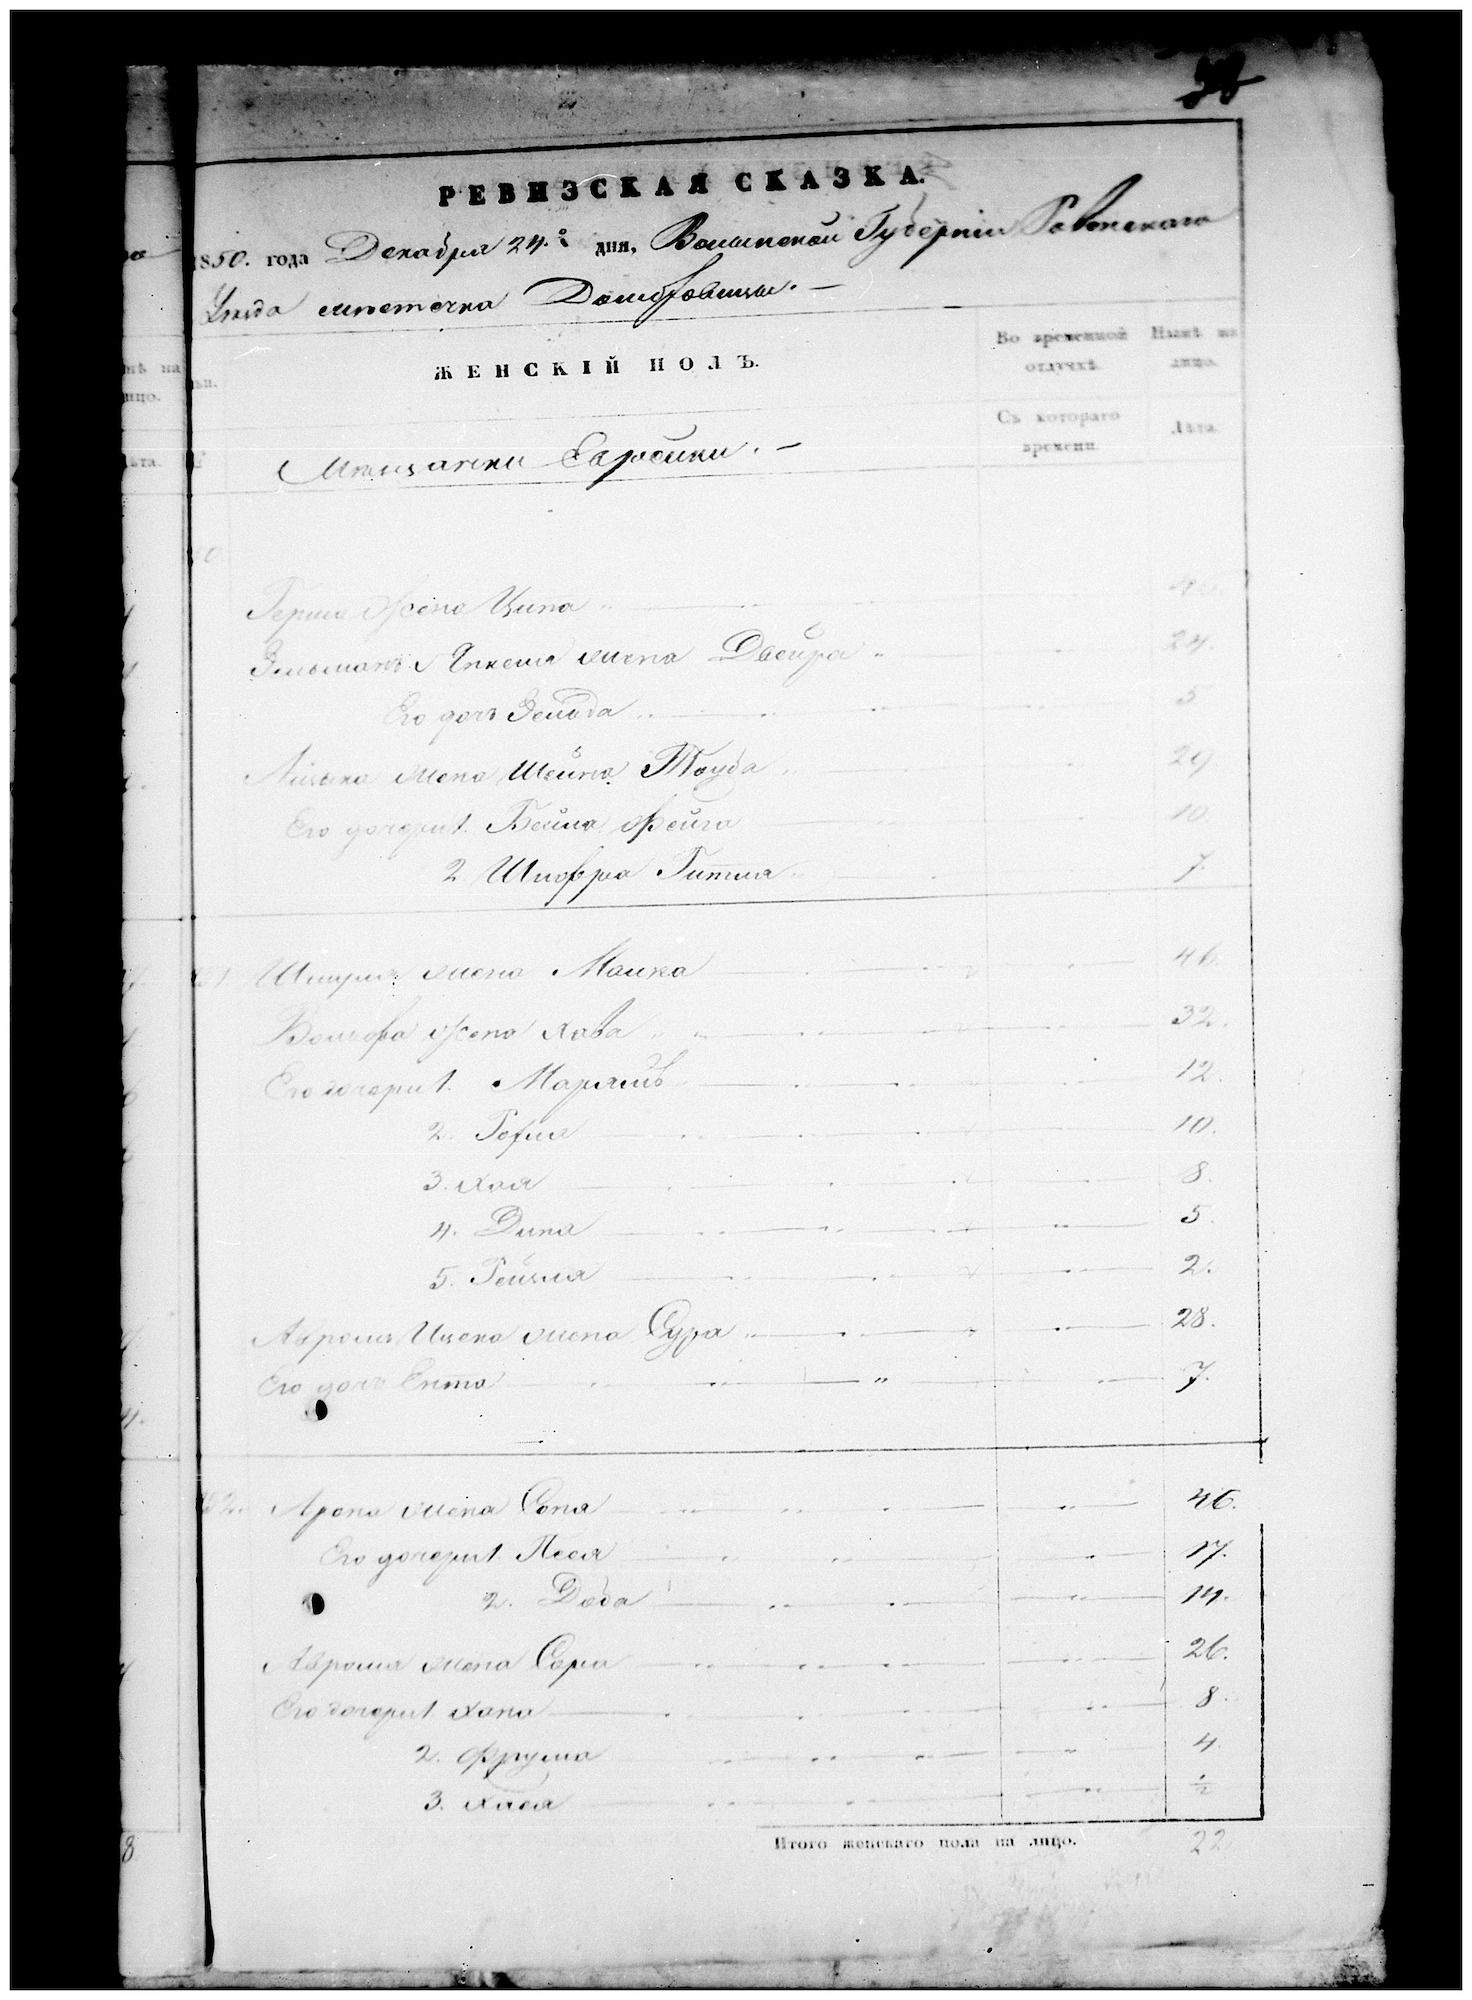 РЕВИЗСКАЯ СКАЗКА.
1850. года Декабря 24.º дня, Волынской Губерніи Ровенскаго
Уезда местечка Домбровицы. —
ЖЕНСКІЙ ПОЛЪ.
Во временной отлучкѣ.
Нынѣ на лицо.
Съ котораго времени.
Лѣта.
Мещанки Еврейки. —
Герша жена Ципа
Зельманъ Янкеля жена Двейра 24.
Его дочь Зельда 5
жена Шейна Тауба 29
Его дочери 1. Бейла Фейга 10.
2 Шифра Гитля 7.
61 Шмуля жена Малка 46.
Вольфа жена Хава 32.
Его дочери 1. Марьямъ 12.
2. Рефля 10.
3. Хая 8.
4. Дина 5.
5. Рейзля 2.
Аврома Ицека жена Сура 28.
Его дочь Ента 7.
62. Арона жена Соня 46.
Его дочери 1. Песя 17.
2. Доба 14.
Аврома жена Сора 26.
Его дочери 1. Хана 8.
2. Фрума 4.
3. Хася ½
Итого женскаго пола на лицо. 22